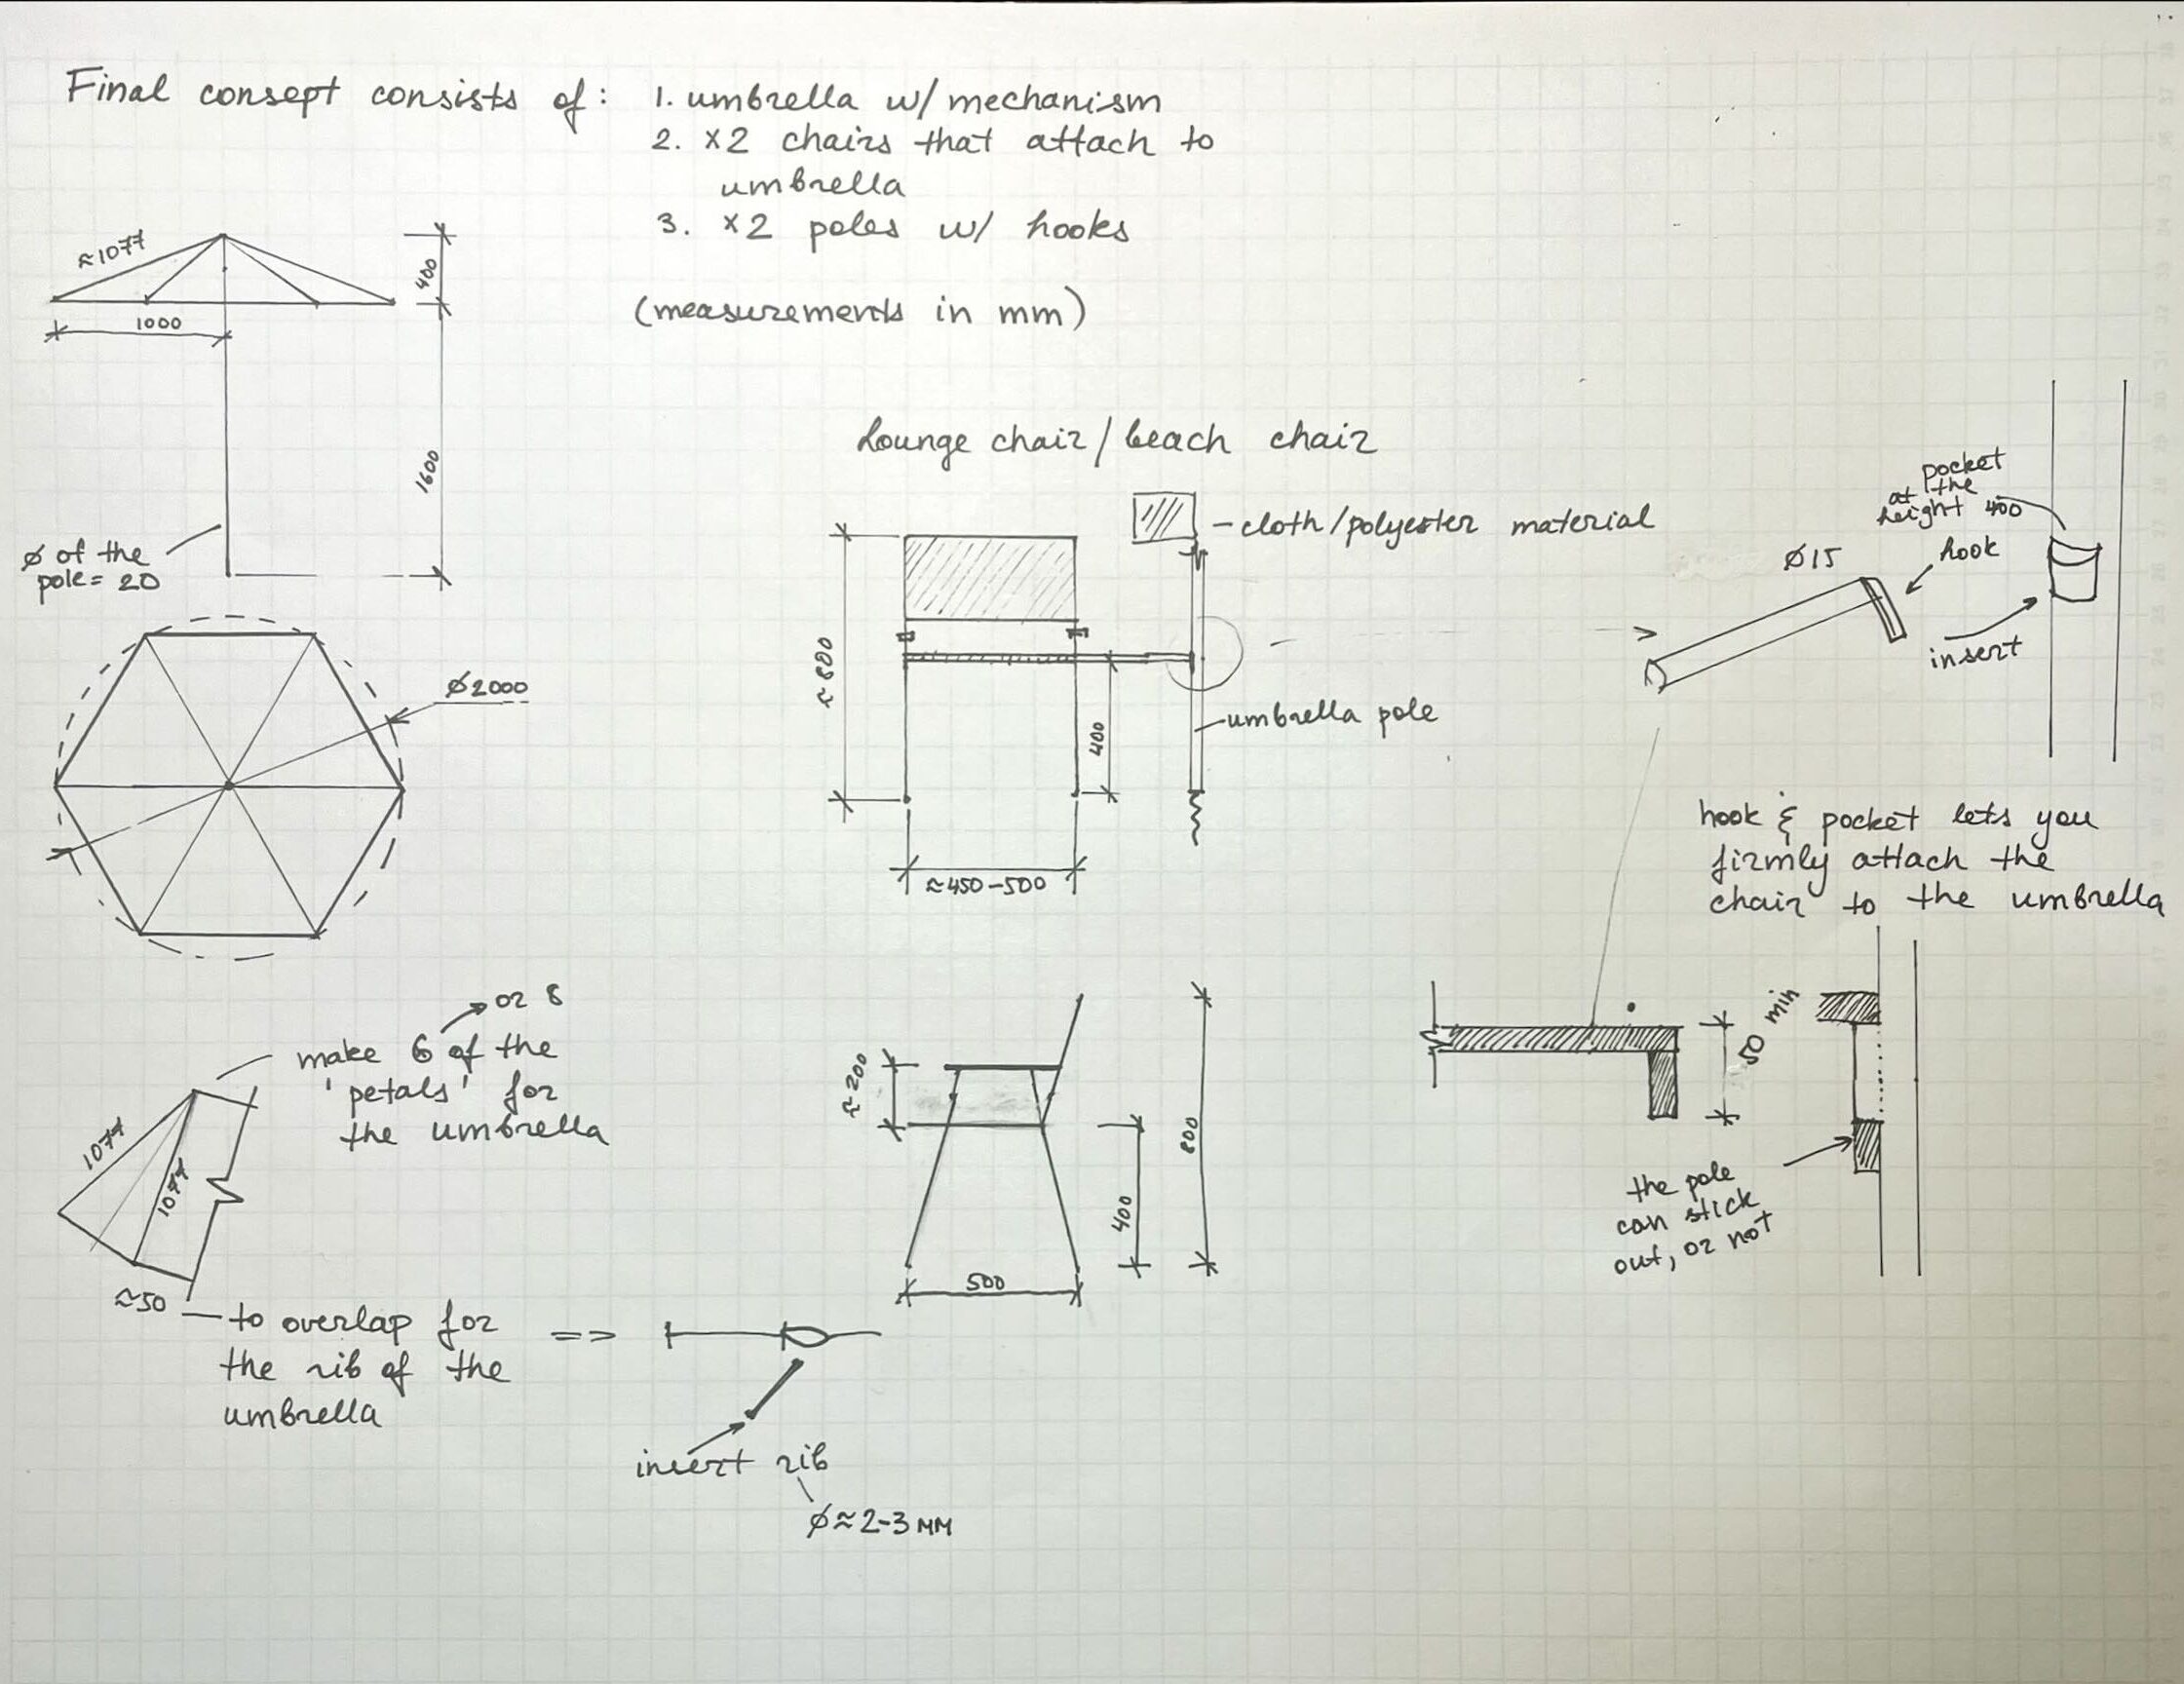 Final consept consists of: 1. umbrella w/ mechanism
2. x2 chairs that attach to
umbrella
3. x2 poles w/ hooks
(measurements in mm)
≈1077
400
1000
1600
ø of the
pole = 20
ø2000
or 8
make 6 of the
'petals' for
the umbrella
1077
1077
≈50 — to overlap for
the rib of the
umbrella
=>
insert rib
ø≈2-3мм
Lounge chair / beach chair
- cloth/polyester material
≈800
400
umbrella pole
≈450-500
≈200
400
800
500
pocket
at the
height 400
ø15
hook
insert
hook & pocket lets you
firmly attach the
chair to the umbrella
50 min
the pole
can stick
out, or not